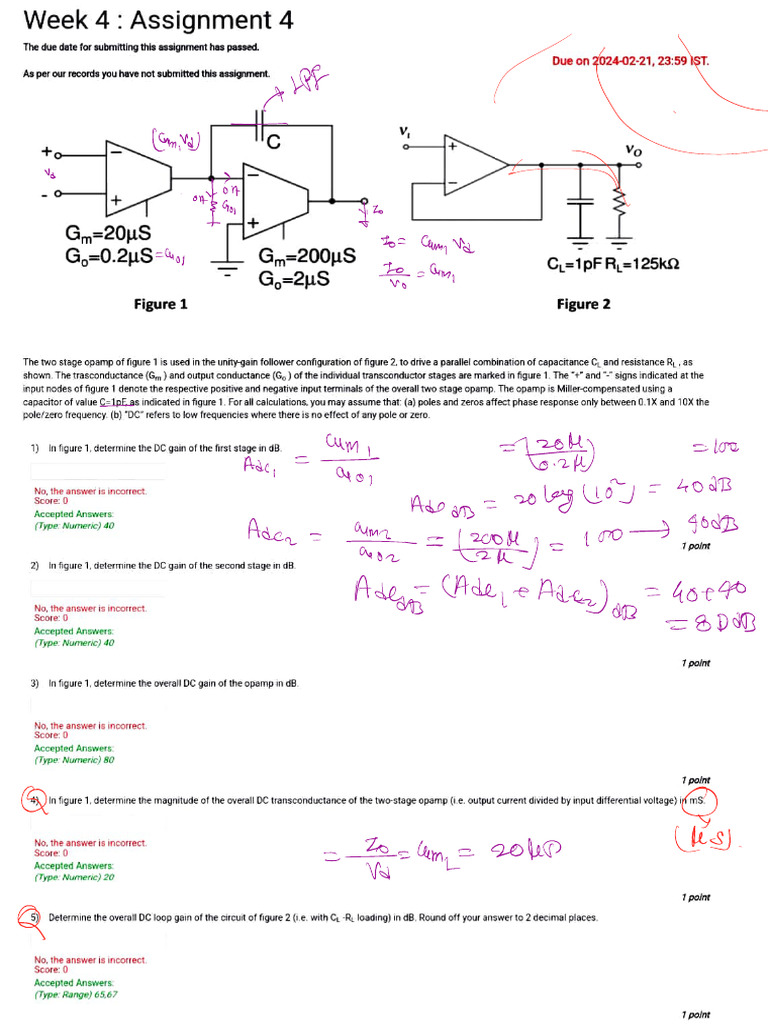 Week 4 : Assignment 4
The due date for submitting this assignment has passed.
Due on 2024-02-21, 23:59 IST.
As per our records you have not submitted this assignment.
LPF
(Gm1 Vd)
C
+
Vd
-
−
+
Gm=20µS
Go=0.2µS =Go1
−
+
Gm=200µS
Go=2µS
Io
Io = Gm1 Vd
Figure 1
VI
+
−
VO
CL=1pF RL=125kΩ
Figure 2
The two stage opamp of figure 1 is used in the unity-gain follower configuration of figure 2, to drive a parallel combination of capacitance CL and resistance RL , as
shown. The trasconductance (Gm ) and output conductance (Go ) of the individual transconductor stages are marked in figure 1. The "+" and "-" signs indicated at the
input nodes of figure 1 denote the respective positive and negative input terminals of the overall two stage opamp. The opamp is Miller-compensated using a
capacitor of value C=1pF, as indicated in figure 1. For all calculations, you may assume that: (a) poles and zeros affect phase response only between 0.1X and 10X the
pole/zero frequency. (b) "DC" refers to low frequencies where there is no effect of any pole or zero.
1) In figure 1, determine the DC gain of the first stage in dB.
Adc1 = Gm1 / Go1 = (20µ / 0.2µ) = 100
No, the answer is incorrect.
Score: 0
Accepted Answers:
(Type: Numeric) 40
Adc dB = 20 log (10²) = 40 dB
Adc2 = Gm2 / Go2 = (200µ / 2µ) = 100 → 40dB
1 point
2) In figure 1, determine the DC gain of the second stage in dB.
Adc dB = (Adc1 + Adc2) dB = 40+40
= 80 dB
No, the answer is incorrect.
Score: 0
Accepted Answers:
(Type: Numeric) 40
1 point
3) In figure 1, determine the overall DC gain of the opamp in dB.
No, the answer is incorrect.
Score: 0
Accepted Answers:
(Type: Numeric) 80
1 point
4) In figure 1, determine the magnitude of the overall DC transconductance of the two-stage opamp (i.e. output current divided by input differential voltage) in mS.
(µs).
No, the answer is incorrect.
Score: 0
Accepted Answers:
(Type: Numeric) 20
1 point
5) Determine the overall DC loop gain of the circuit of figure 2 (i.e. with CL -RL loading) in dB. Round off your answer to 2 decimal places.
No, the answer is incorrect.
Score: 0
Accepted Answers:
(Type: Range) 65,67
1 point